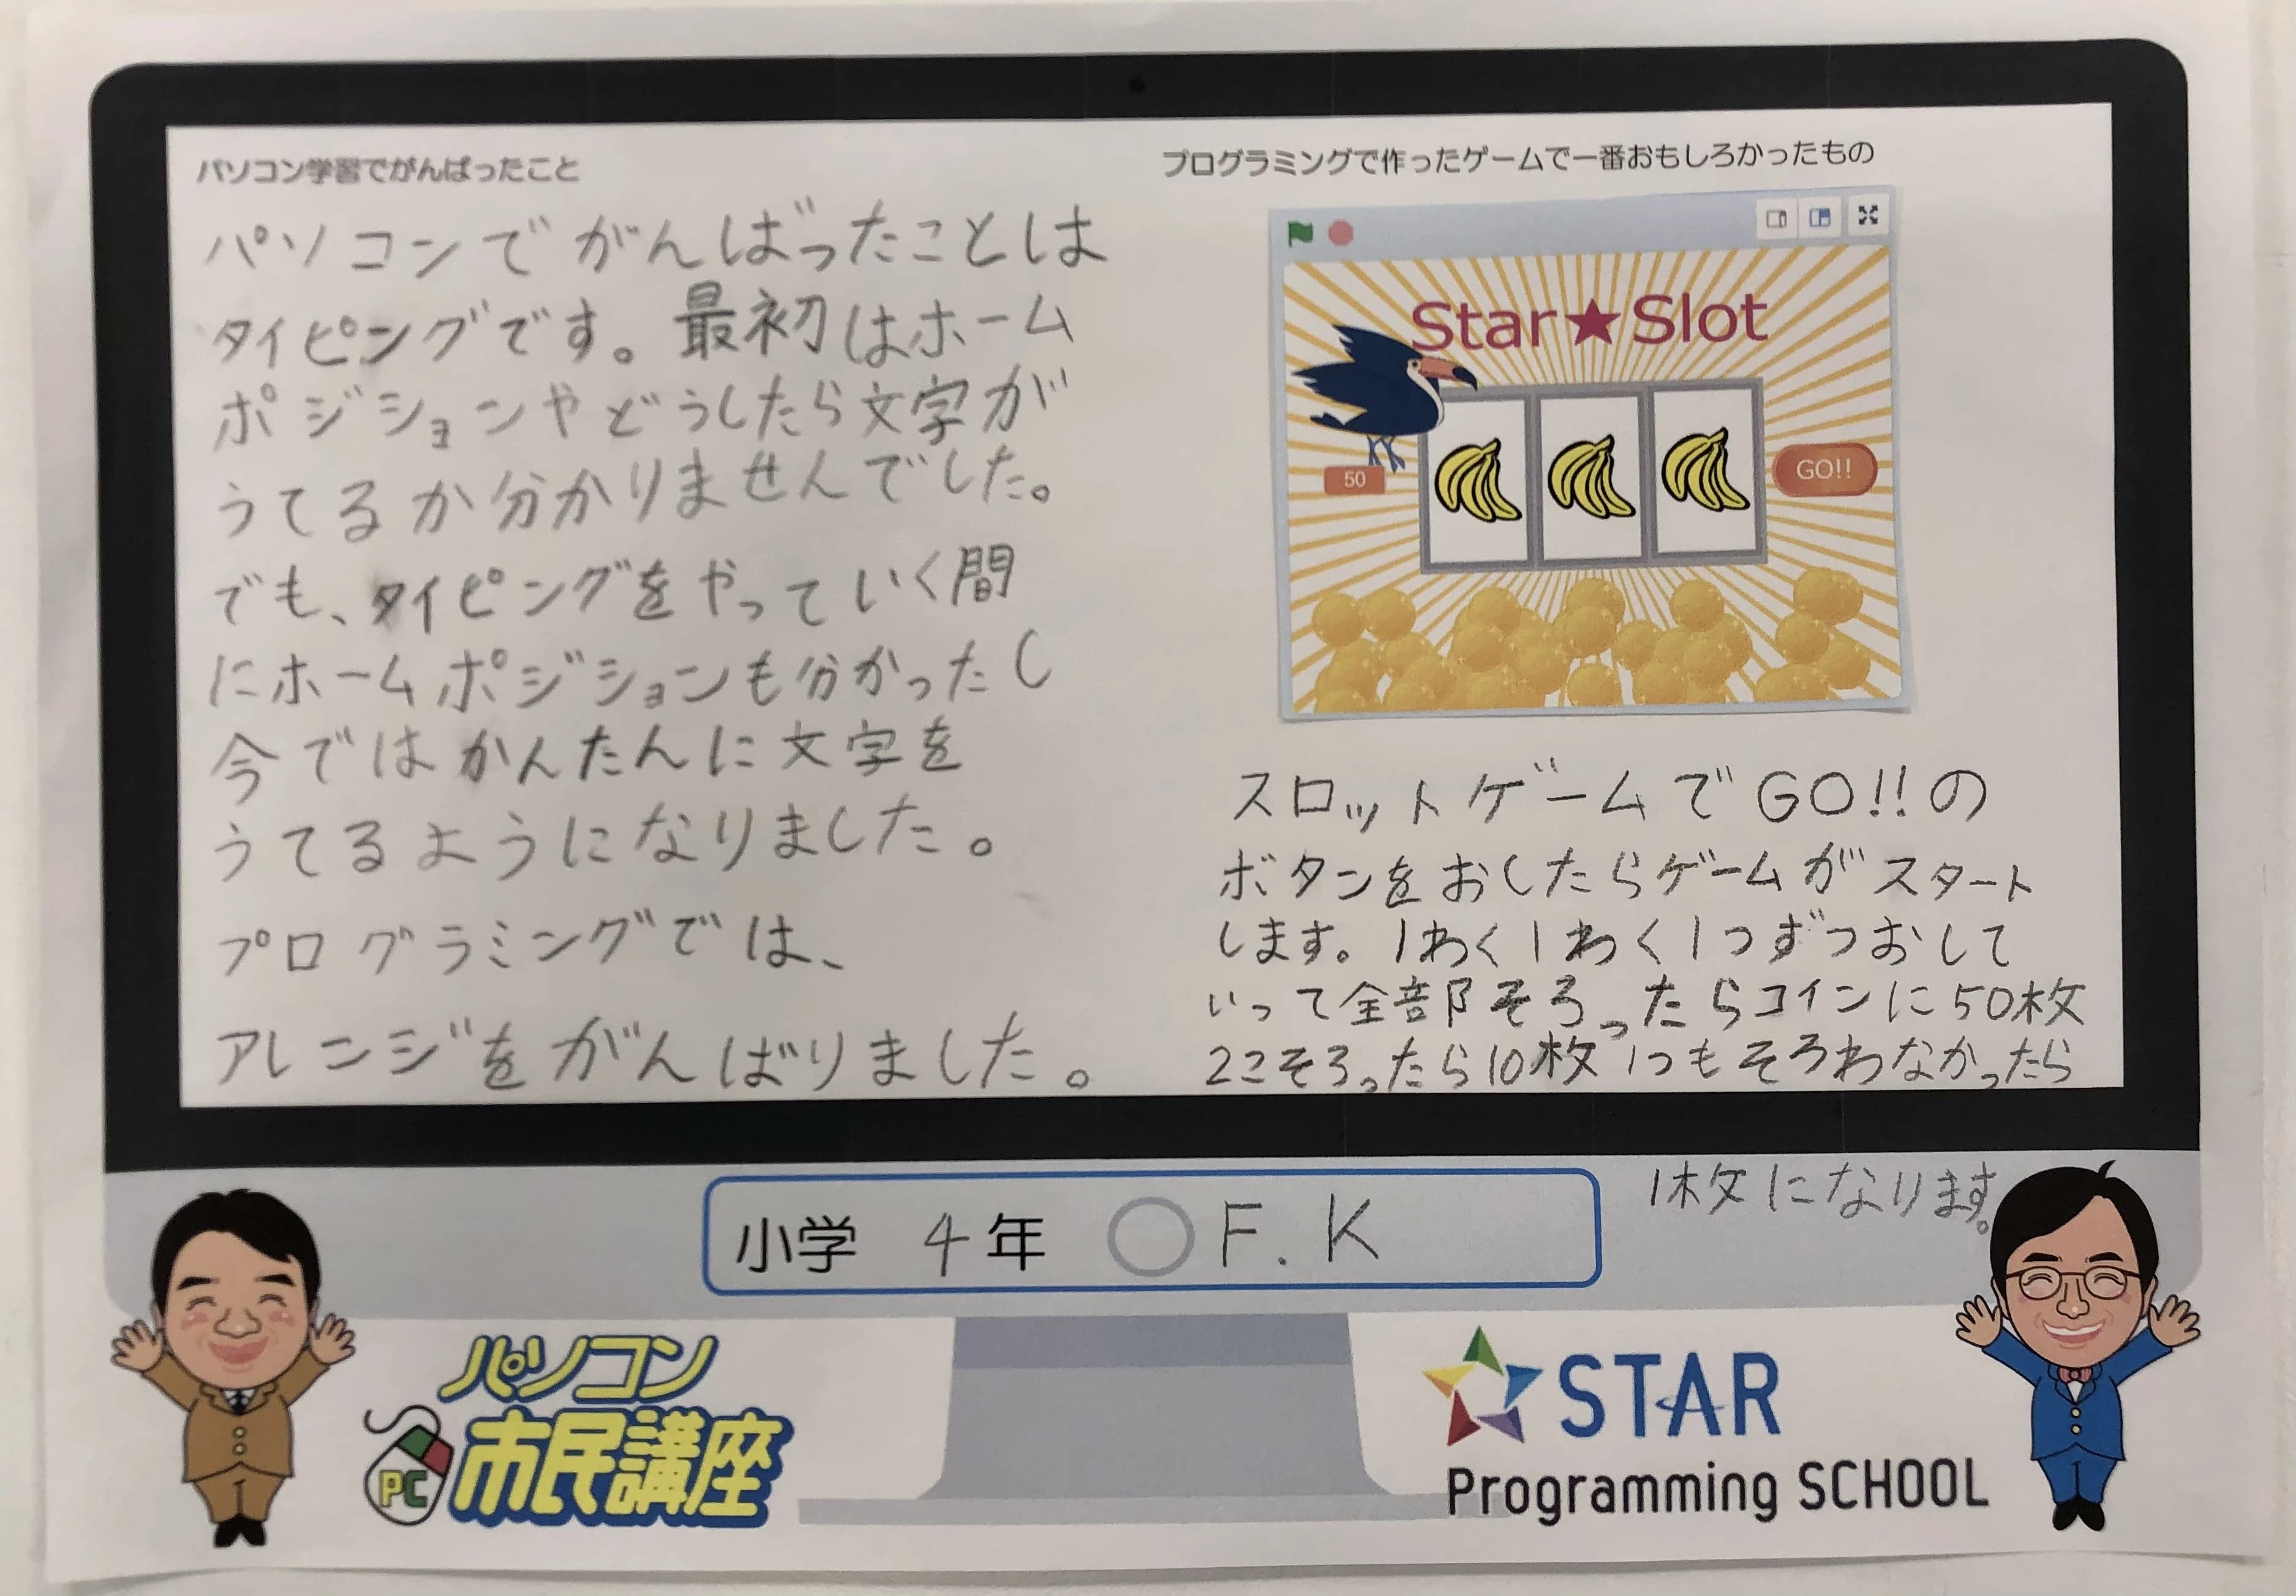 パソコン学習でがんばったこと
パソコンでがんばったことは
タイピングです。最初はホーム
ポジションやどうしたら文字が
うてるか分かりませんでした。
でも、タイピングをやっていく間
にホームポジションも分かったし
今ではかんたんに文字を
うてるようになりました。
プログラミングでは、
アレンジをがんばりました。
プログラミングで作ったゲームで一番おもしろかったもの
Star★Slot
50
GO!!
スロットゲームでGO!!の
ボタンをおしたらゲームがスタート
します。1わく1わく1つずつおして
いって全部そろったらコインに50枚
2こそろったら10枚1つもそろわなかったら
1枚になります。
小学 4年 ○F.K
パソコン
市民講座
PC
STAR
Programming SCHOOL